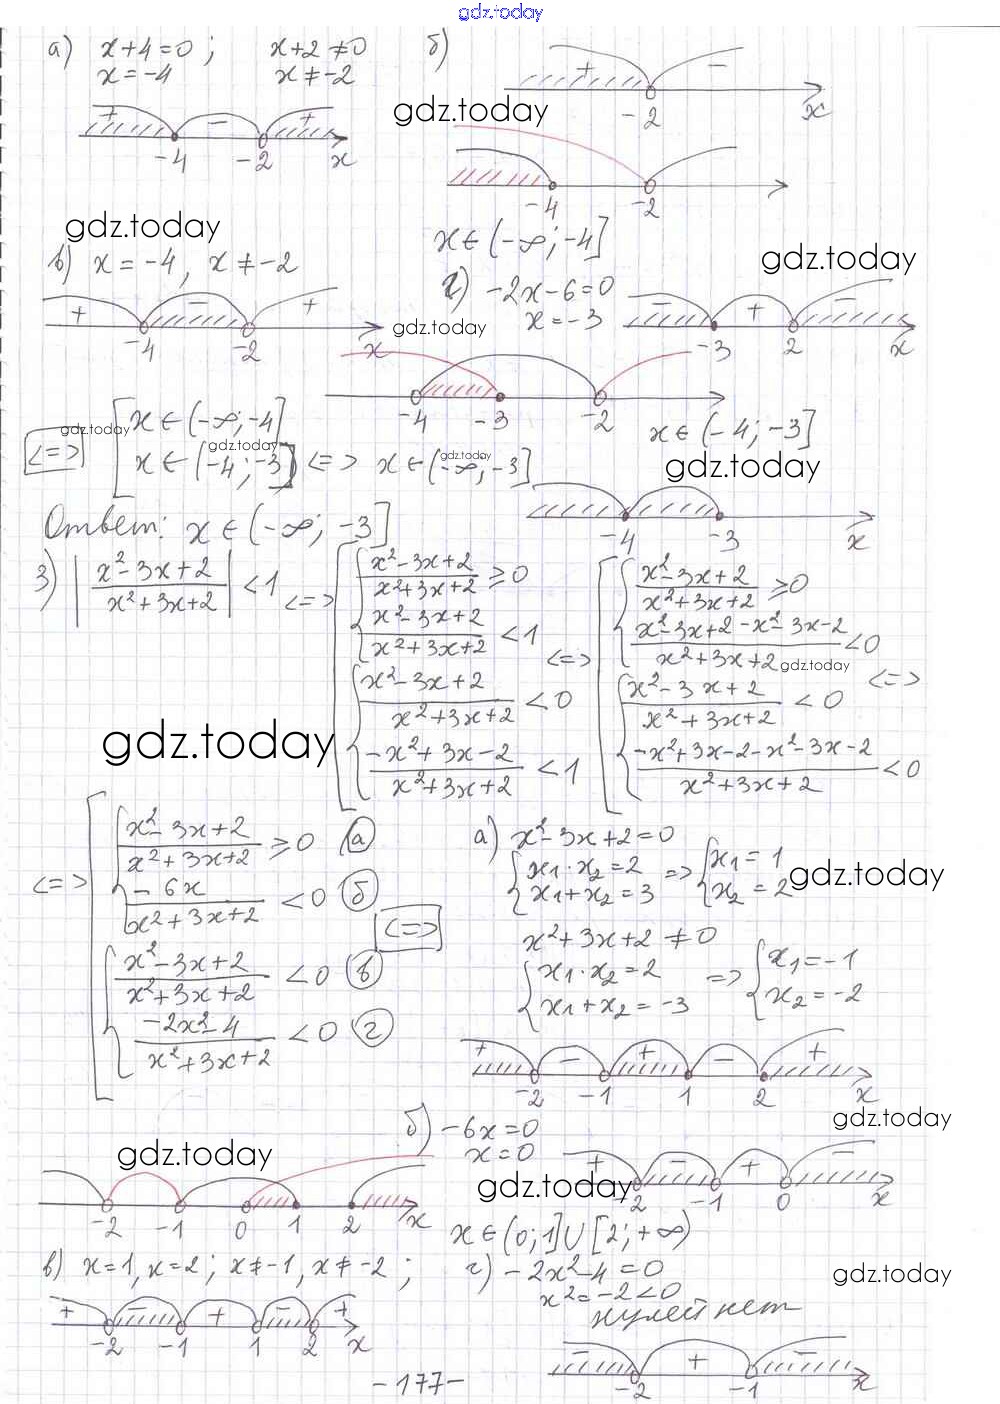 gdz.today
а) x+4=0; x+2≠0
x=-4 x≠-2
+ - +
-4 -2 x
б)
+ -
-2 x
gdz.today
-4 -2
x∈(-∞;-4]
gdz.today
в) x=-4, x≠-2
+ - +
-4 -2 x
gdz.today
г) -2x-6=0
x=-3
gdz.today
- + -
-3 2 x
-4 -3 -2
x∈(-4;-3]
gdz.today
<=> [ x∈(-∞;-4]
x∈(-4;-3] <=> x∈(-∞;-3]
gdz.today
gdz.today
gdz.today
-4 -3 x
Ответ: x∈(-∞;-3]
3) |(x²-3x+2)/(x²+3x+2)|<1 <=> [ { (x²-3x+2)/(x²+3x+2)≥0
(x²-3x+2)/(x²+3x+2)<1
{ (x²-3x+2)/(x²+3x+2)<0
(-x²+3x-2)/(x²+3x+2)<1
<=> [ { (x²-3x+2)/(x²+3x+2)≥0
(x²-3x+2-x²-3x-2)/(x²+3x+2)<0
gdz.today
{ (x²-3x+2)/(x²+3x+2)<0
(-x²+3x-2-x²-3x-2)/(x²+3x+2)<0 <=>
gdz.today
<=> [ { (x²-3x+2)/(x²+3x+2)≥0 (а)
-6x/(x²+3x+2)<0 (б)
{ (x²-3x+2)/(x²+3x+2)<0 (в)
(-2x²-4)/(x²+3x+2)<0 (г)
<=>
а) x²-3x+2=0
{ x₁·x₂=2
x₁+x₂=3 => { x₁=1
x₂=2
gdz.today
x²+3x+2≠0
{ x₁·x₂=2
x₁+x₂=-3 => { x₁=-1
x₂=-2
+ - + - +
-2 -1 1 2 x
gdz.today
б) -6x=0
x=0
+ - + -
-2 -1 0 x
gdz.today
gdz.today
-2 -1 0 1 2 x
x∈(0;1]∪[2;+∞)
в) x=1, x=2; x≠-1, x≠-2;
+ - + - +
-2 -1 1 2 x
г) -2x²-4=0
x²=-2<0
нулей нет
gdz.today
- + -
-2 -1 x
-177-